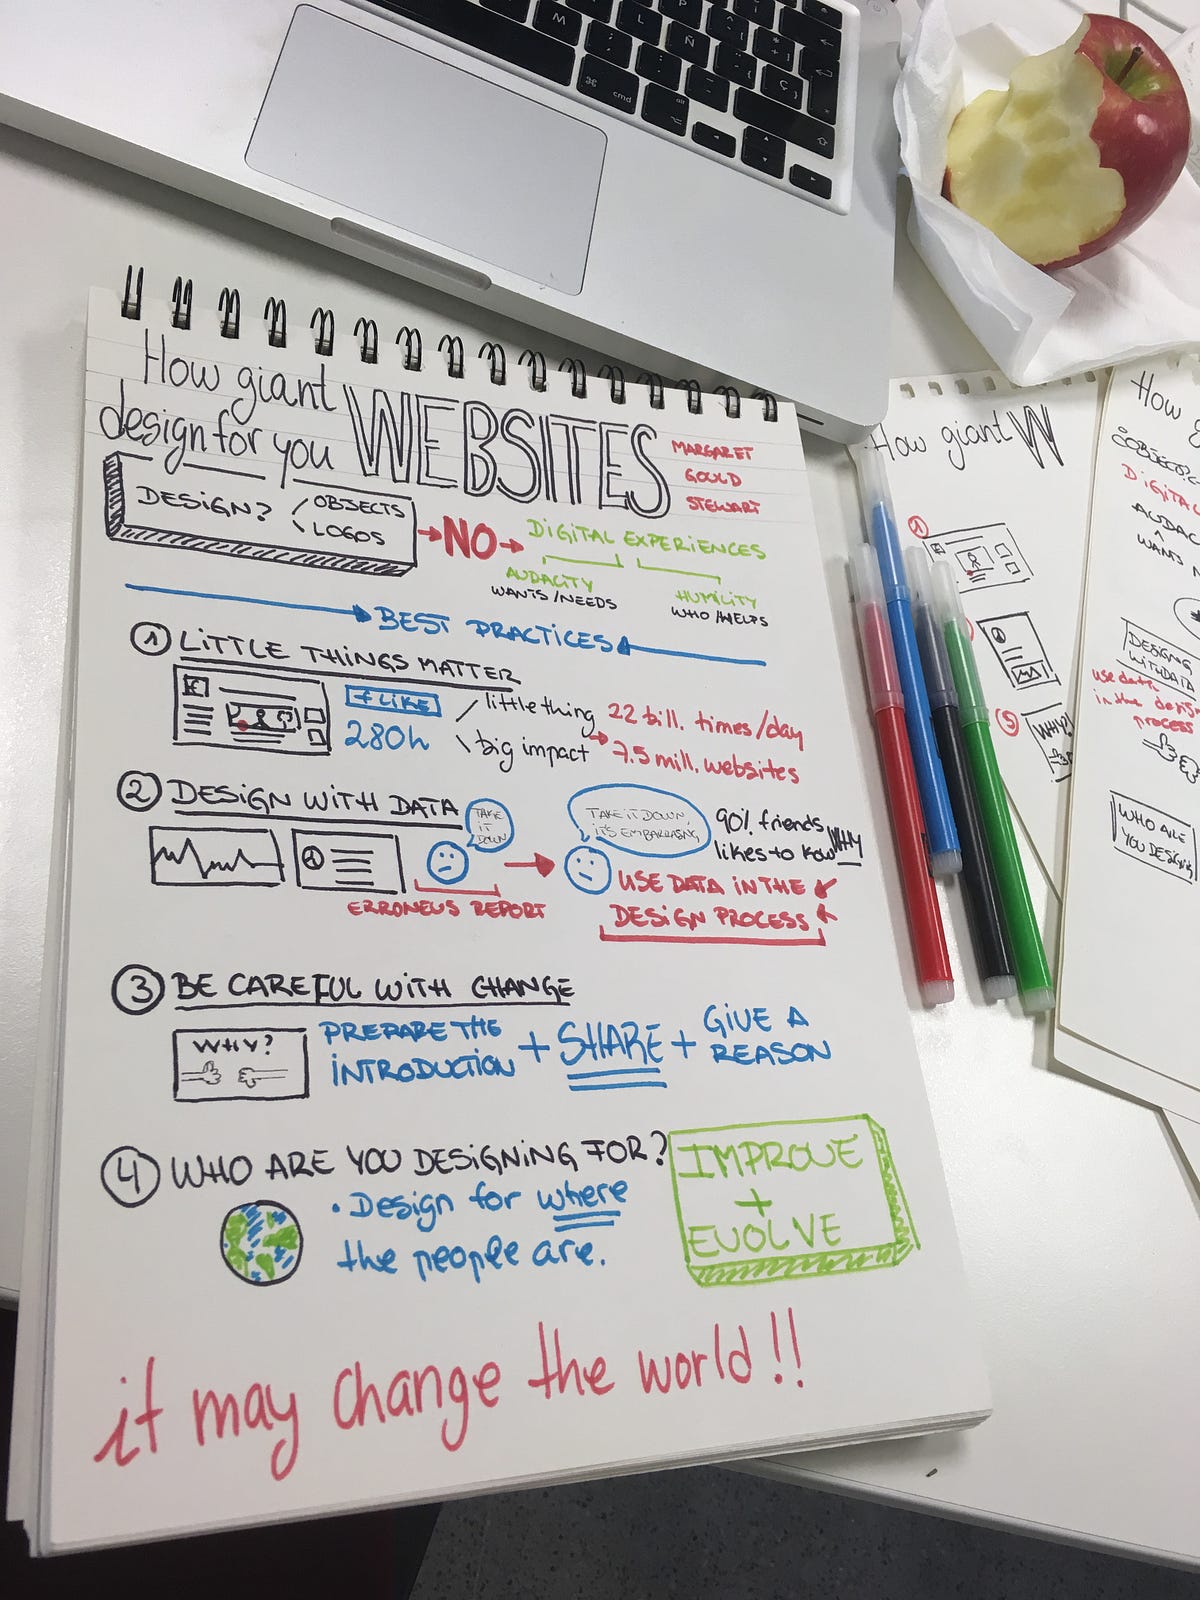 How giant
design for you WEBSITES
MARGARET
GOULD
STEWART
DESIGN? OBJECTS
LOGOS
NO
DIGITAL EXPERIENCES
AUDACITY
WANTS/NEEDS
HUMILITY
WHO/HELPS
BEST PRACTICES
1 LITTLE THINGS MATTER
+LIKE
280h
little thing
big impact
22 bill. times/day
7.5 mill. websites
2 DESIGN WITH DATA
TAKE
IT
DOWN
TAKE IT DOWN,
IT'S EMBARRASING
90% friends
likes to know WHY
ERRONEUS REPORT
USE DATA IN THE
DESIGN PROCESS
3 BE CAREFUL WITH CHANGE
WHY?
PREPARE THE
INTRODUCTION
+ SHARE +
GIVE A
REASON
4 WHO ARE YOU DESIGNING FOR?
• Design for where
the people are.
IMPROVE
+
EVOLVE
it may change the world!!
How giant W
1
WHY?
How
OBJECT
DIGITAL
AUDAC
WANTS N
DESIGNING
WITH DATA
use data
in the design
process
WHO ARE
YOU DESIGNI
M
L
P
Ñ
Ç
cmd
alt